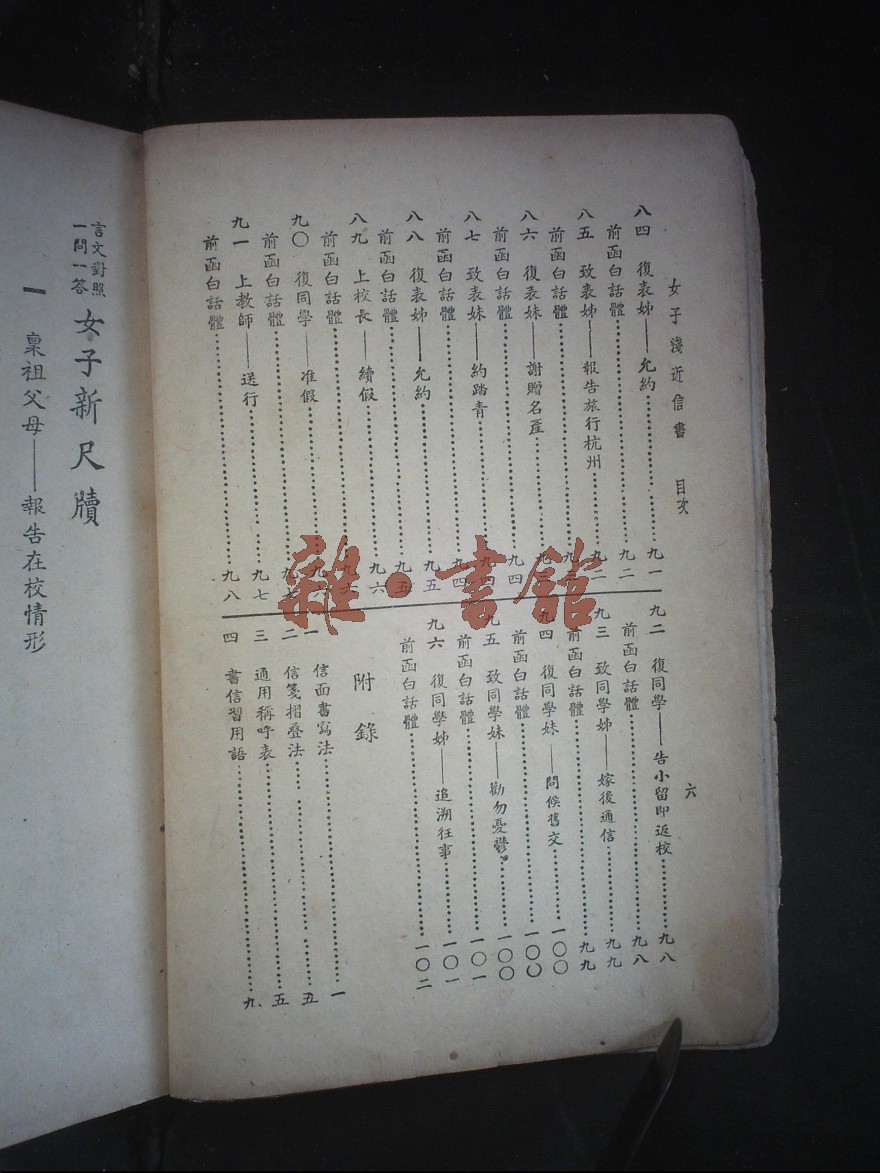 女子淺近信書 目次 六
八四 復表姊——允約……九一
前函白話體……九二
八五 致表姊——報告旅行杭州……九二
前函白話體……
八六 復表妹——謝贈名產……九三
前函白話體……九四
八七 致表妹——約踏青……九四
前函白話體……九四
八八 復表姊——允約……九五
前函白話體……九五
八九 上校長——續假……九六
前函白話體……九六
九〇 復同學——准假……
前函白話體……九七
九一 上教師——送行……九七
前函白話體……九八
九二 復同學——告小留即返校……九八
前函白話體……九八
九三 致同學姊——嫁後通信……九九
前函白話體……九九
九四 復同學妹——問候舊交……一〇〇
前函白話體……一〇〇
九五 致同學妹——勸勿憂鬱……一〇〇
前函白話體……一〇一
九六 復同學姊——追溯往事……一〇一
前函白話體……一〇二
附錄
一 信面書寫法……一
二 信箋摺叠法……五
三 通用稱呼表……五
四 書信習用語……九
雜·書館
言文對照
一問一答
女子新尺牘
一 稟祖父母——報告在校情形